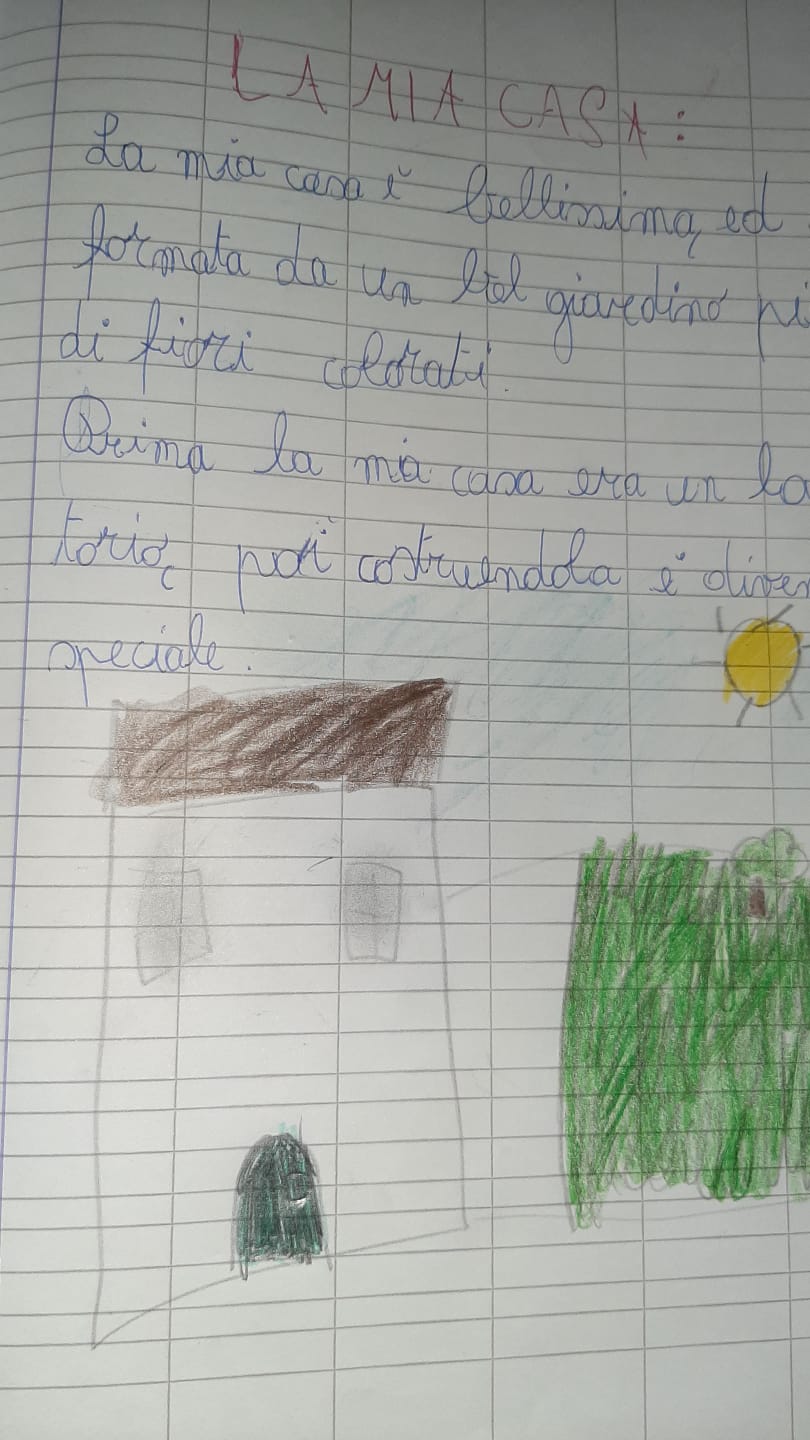 LA MIA CASA:
La mia casa è bellissima, ed
formata da un bel giardino pi
di fiori colorati.
Prima la mia casa era un la
torio, poi costruendola è diven
speciale.